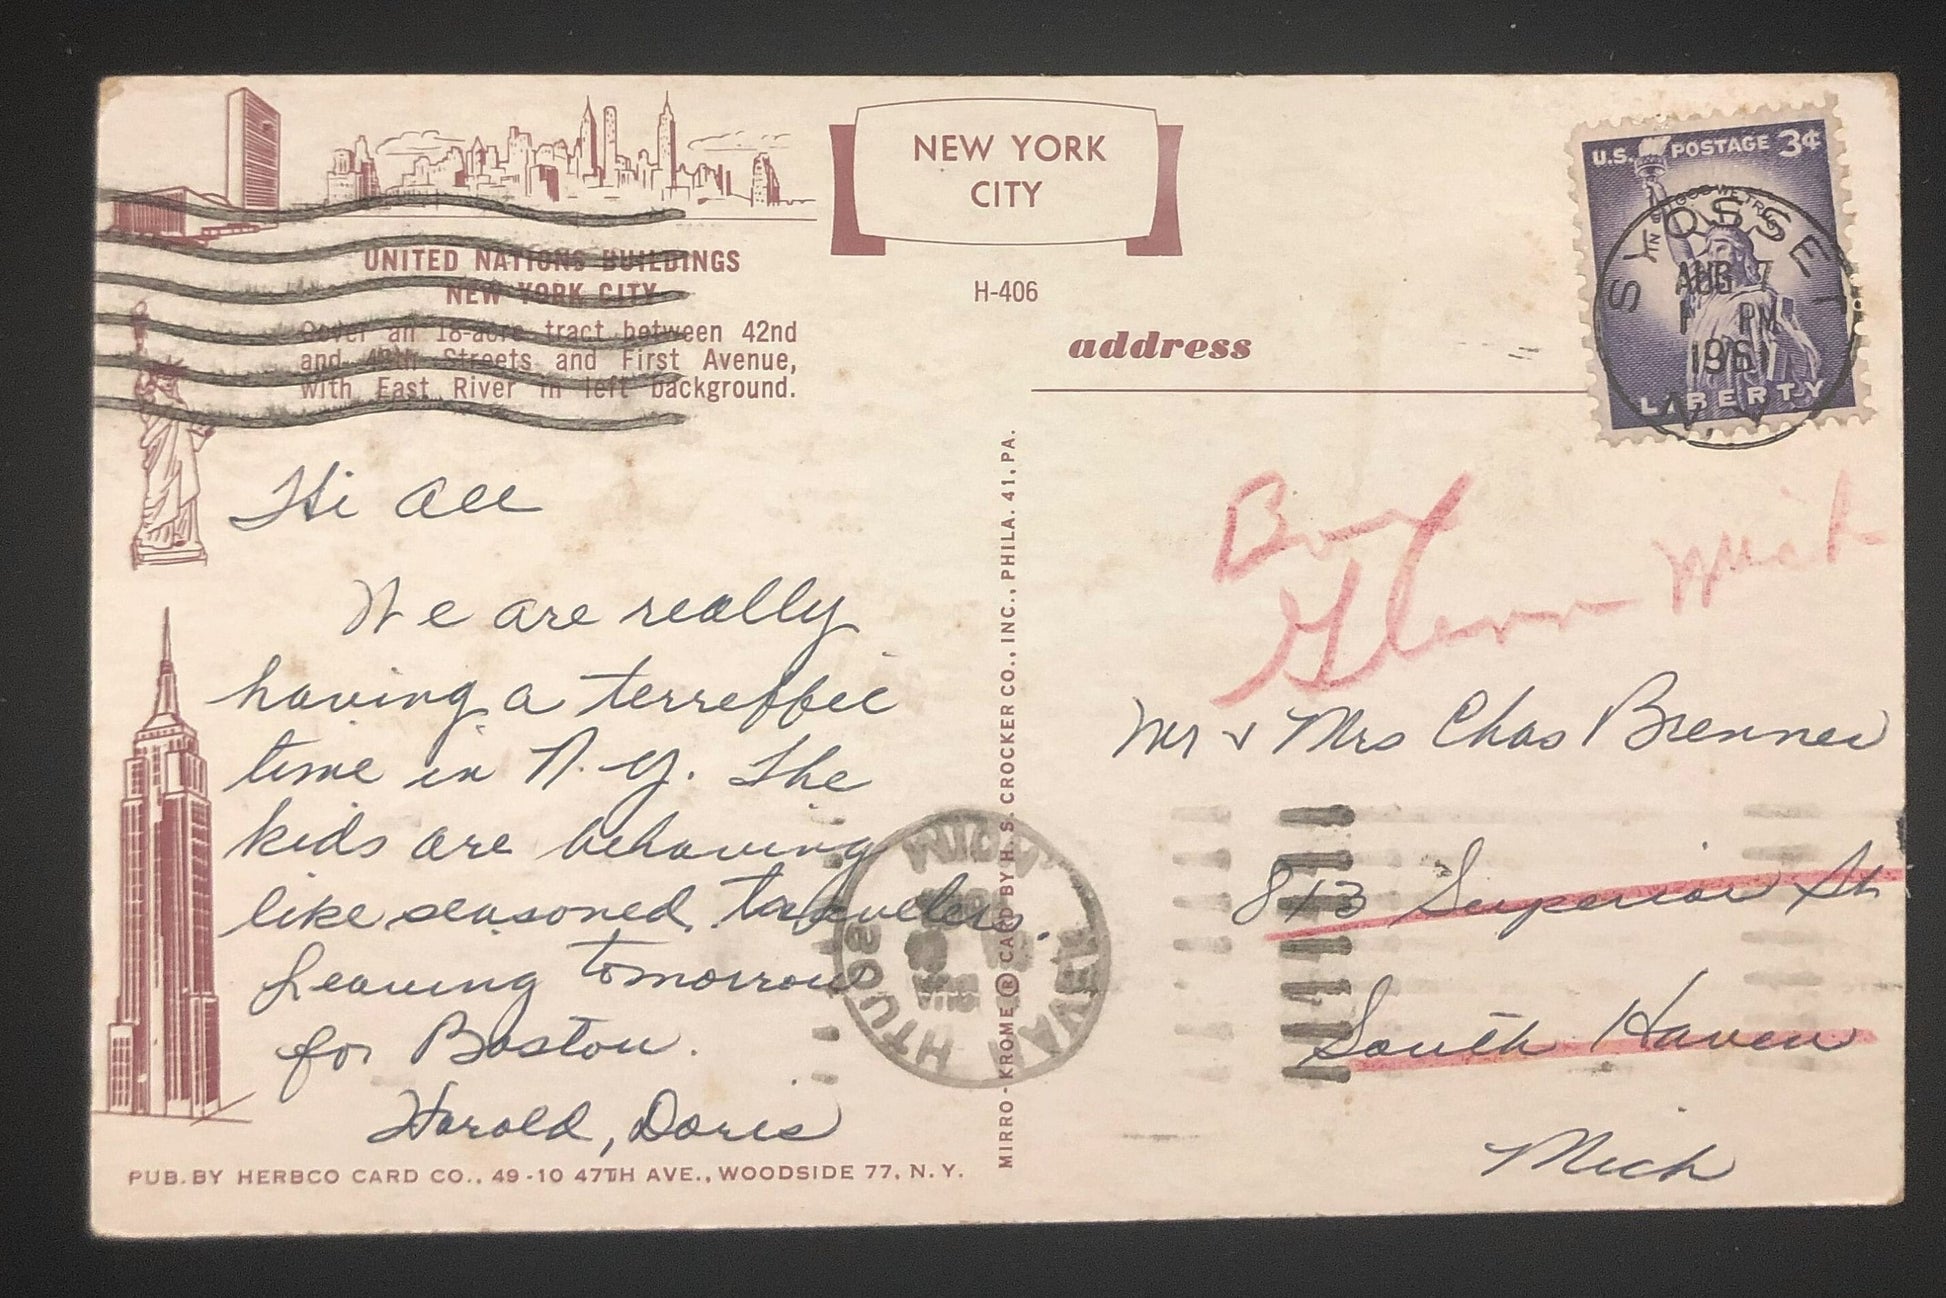 NEW YORK
CITY
UNITED NATIONS BUILDINGS
NEW YORK CITY
Cover an 18-acre tract between 42nd
and 48th Streets and First Avenue,
with East River in left background.
H-406
address
U.S. POSTAGE 3¢
IN GOD WE TRUST
LIBERTY
SYOSSET
AUG 7
PM
1961
N. Y.
Hi all
We are really
having a terreffic
time in N.Y. The
kids are behaving
like seasoned travelers.
Leaving tomorrow
for Boston.
Harold, Doris
PUB. BY HERBCO CARD CO., 49-10 47TH AVE., WOODSIDE 77, N.Y.
MIRRO-KROME ® CARD BY H.S. CROCKER CO., INC., PHILA. 41, PA.
SOUTH HAVEN
MICH
Glenn Mich
Mr & Mrs Chas Brenner
813 Superior St
South Haven
Mich